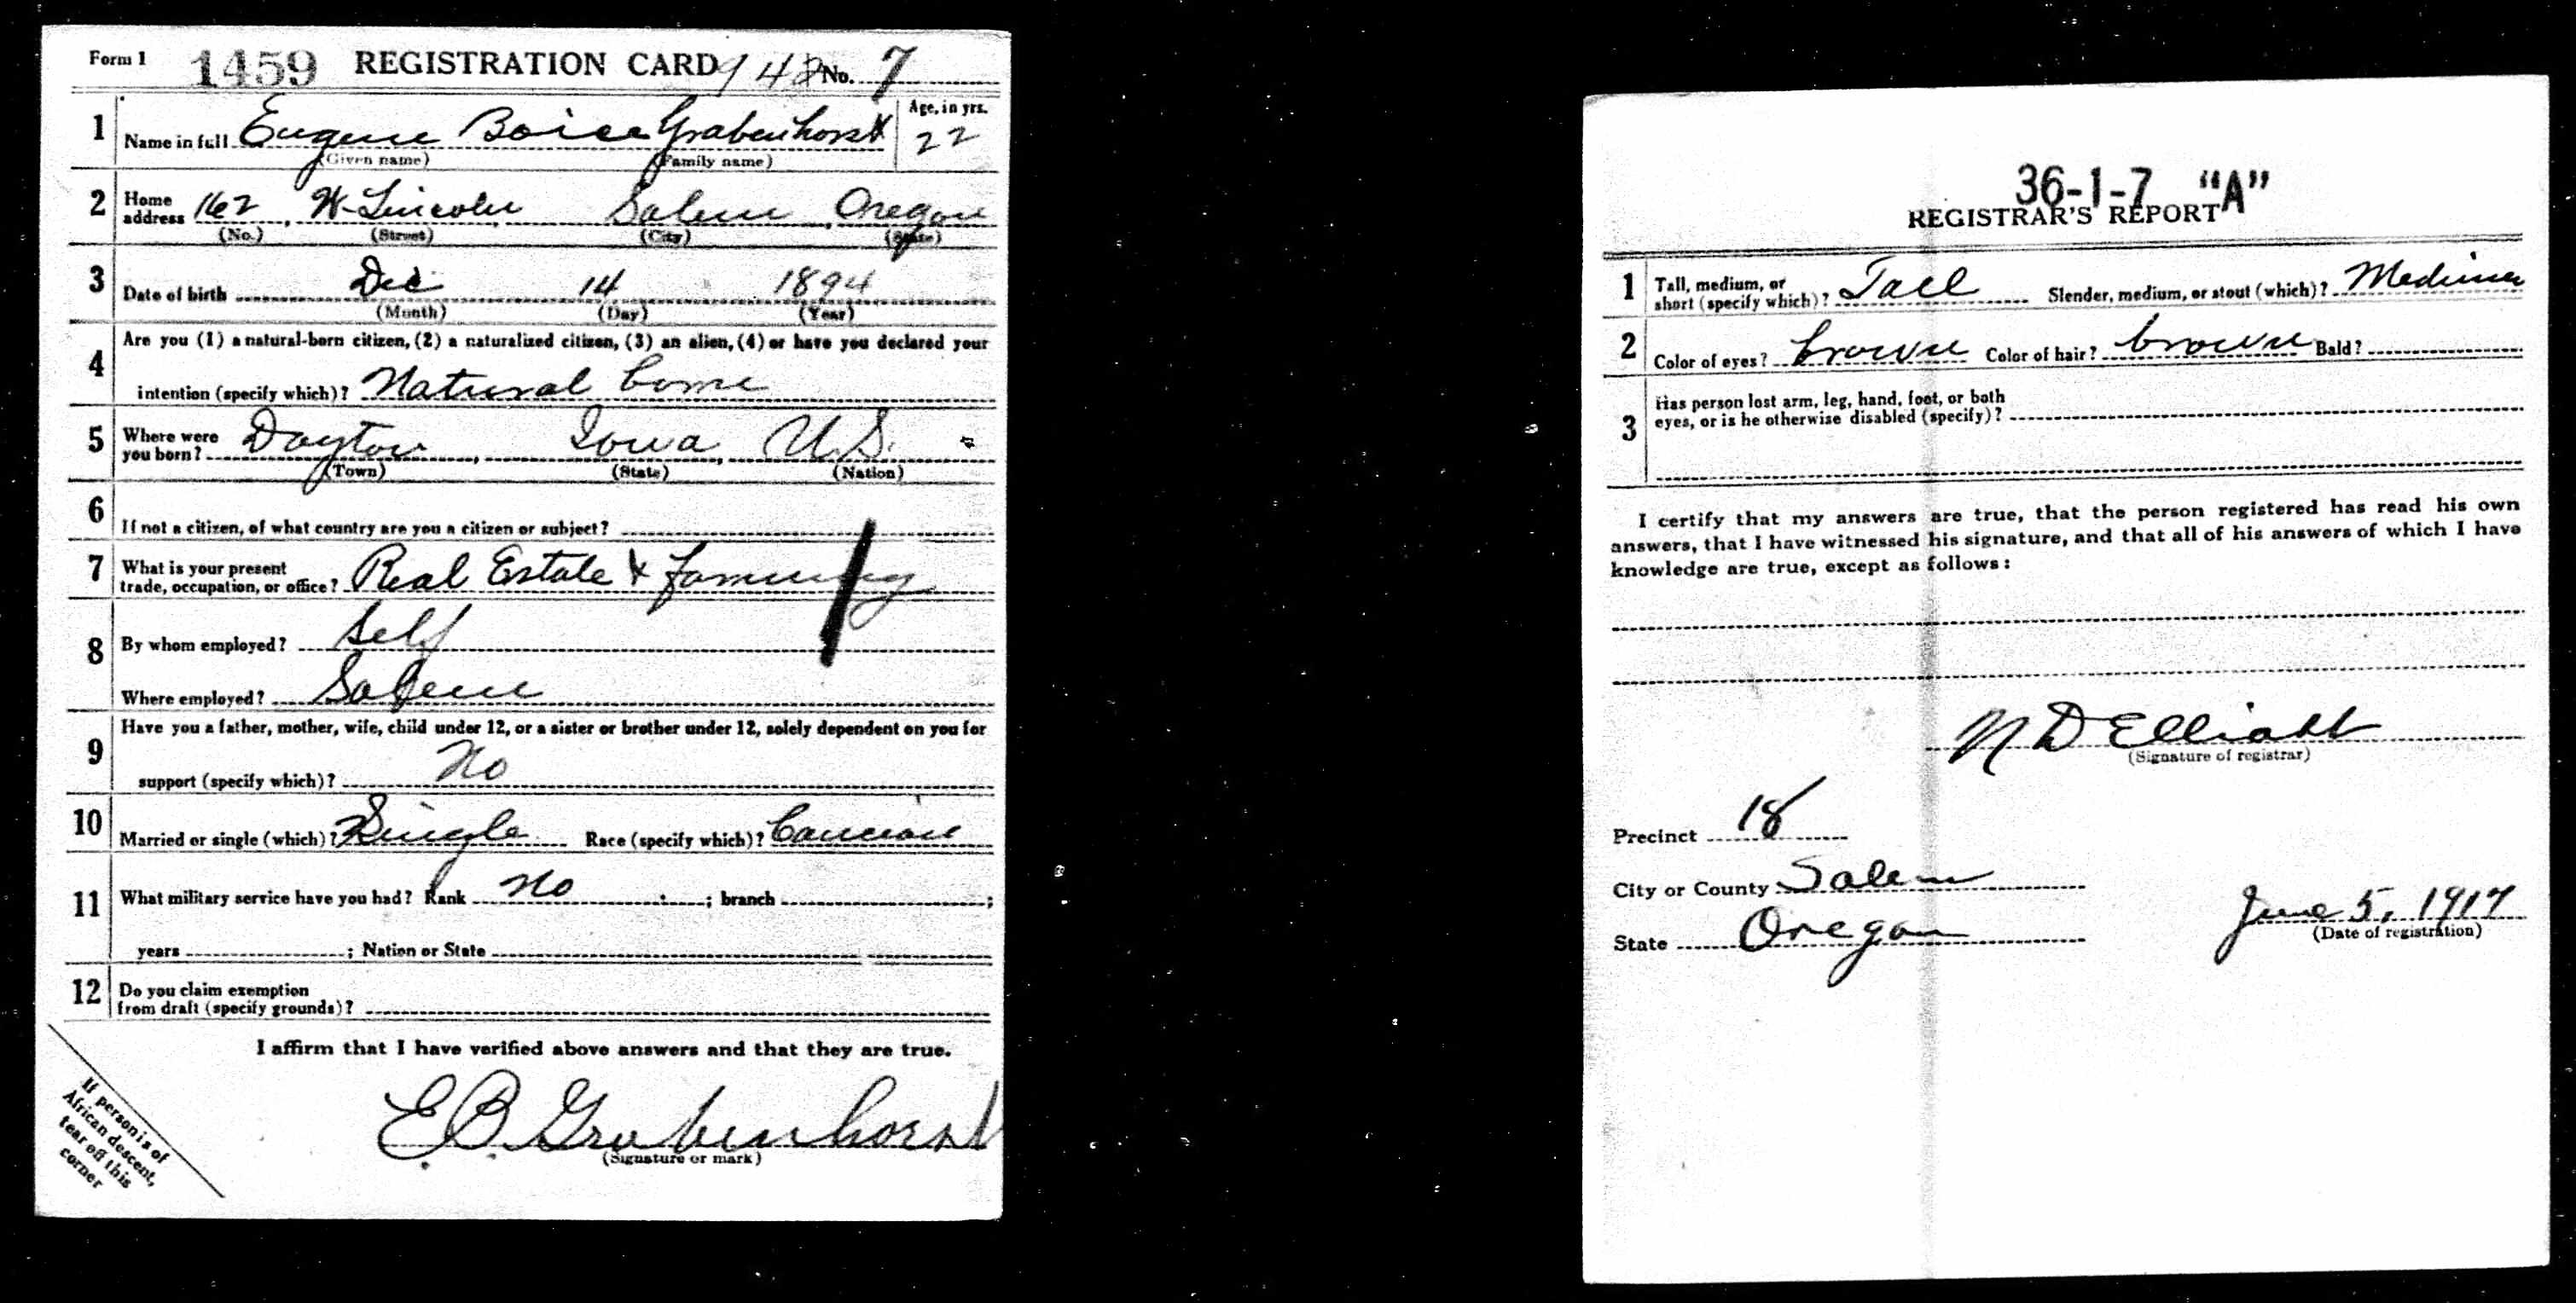 Form 1 1459 REGISTRATION CARD No. 7
1 Name in full Eugene Boise Grabenhorst Age, in yrs. 22
(Given name) (Family name)
2 Home address 162 W. Lincoln Salem, Oregon
(No.) (Street) (City) (State)
3 Date of birth Dec 14 1894
(Month) (Day) (Year)
4 Are you (1) a natural-born citizen, (2) a naturalized citizen, (3) an alien, (4) or have you declared your
intention (specify which)? Natural borne
5 Where were you born? Dayton, Iowa, U.S.
(Town) (State) (Nation)
6 If not a citizen, of what country are you a citizen or subject?
7 What is your present trade, occupation, or office? Real Estate & Farming
8 By whom employed? Self
Where employed? Salem
9 Have you a father, mother, wife, child under 12, or a sister or brother under 12, solely dependent on you for
support (specify which)? No
10 Married or single (which)? Single Race (specify which)?
11 What military service have you had? Rank No ; branch ;
years ; Nation or State
12 Do you claim exemption
from draft (specify grounds)?
I affirm that I have verified above answers and that they are true.
E. B. Grabenhorst
(Signature or mark)
If person is of
African descent,
tear off this
corner
36-1-7 "A"
REGISTRAR'S REPORT
1 Tall, medium, or short (specify which)? Tall Slender, medium, or stout (which)? Medium
2 Color of eyes? brown Color of hair? brown Bald?
3 Has person lost arm, leg, hand, foot, or both
eyes, or is he otherwise disabled (specify)?
I certify that my answers are true, that the person registered has read his own
answers, that I have witnessed his signature, and that all of his answers of which I have
knowledge are true, except as follows:
N D Elliott
(Signature of registrar)
Precinct 18
City or County Salem
State Oregon
June 5, 1917
(Date of registration)